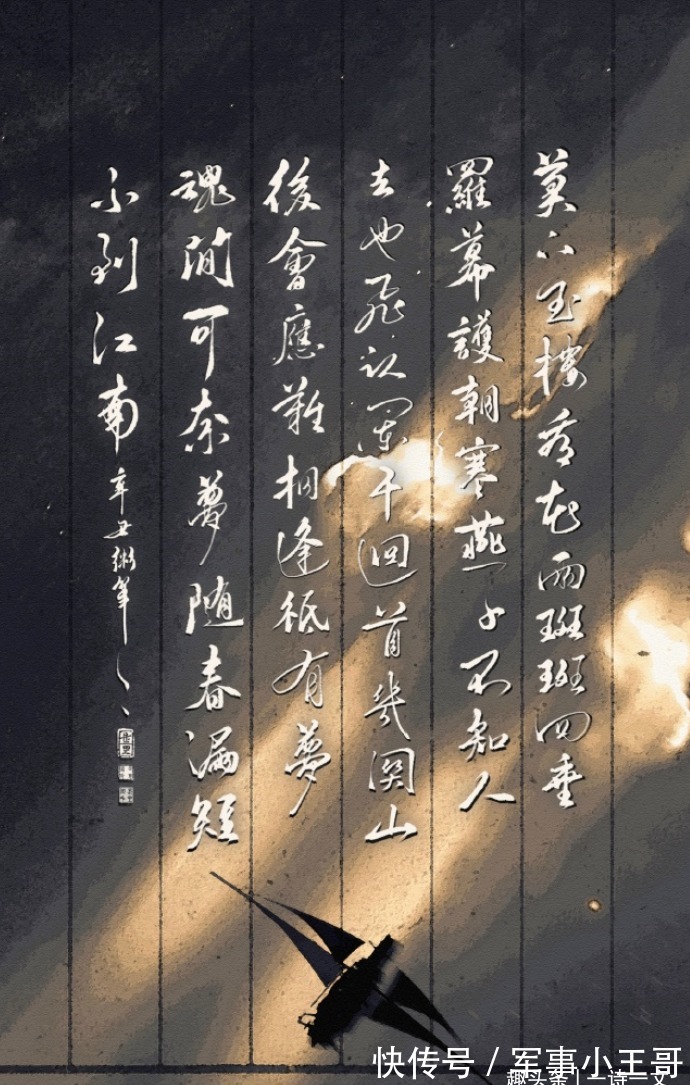 莫上玉樓看花雨斑斑四垂
羅幕護朝寒燕子不知人
去也飛認闌干迴首幾關山
後會應難相逢祇有夢
魂間可奈夢随春漏短
不到江南
辛丑
快传号 / 军事小王哥